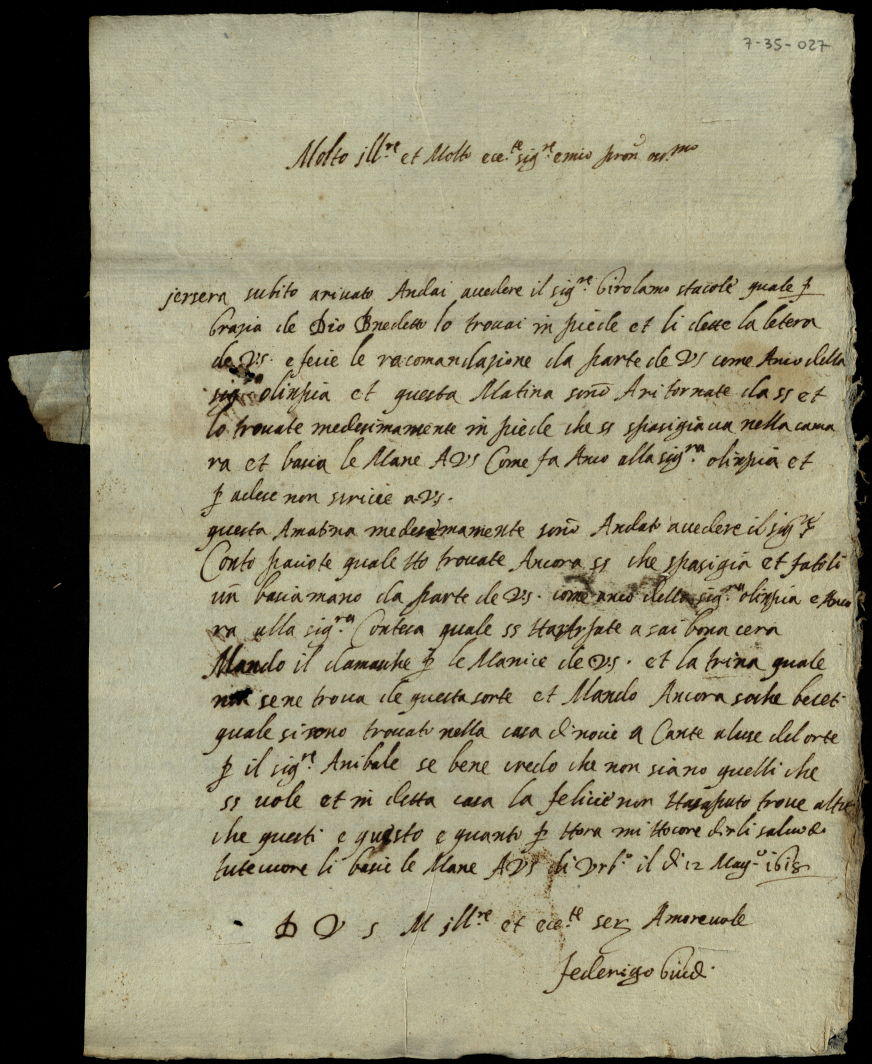 7-35-027
Molto jll.re et Molto ece.te sig.re e mio pron oss.mo
jersera subito ariuato Andai auedere il sig.re Girolamo stacole quale p
Grazia de Dio Bnedetto lo trouai in piede et li dette la letera
de V.S. e fecie le racomandazione da parte de VS come Anco della
sig.ra olinpia et questa Matina sono Aritornate da ss et
lo trouate medesimamente in piede che ss spasigiaua nella cama
ra et bacia le Mane A VS Come fa Anco alla sig.ra olinpia et
p adese non scriue a VS.
questa Amatina medesimamente sono Andato auedere il sig.re
Conto paciote quale lo trouate Ancora ss che spasigia et fatoli
un baciamano da parte de VS. come anco della sig.ra olinpia e Anco
ra alla sig.ra Contesa quale ss asai bona cera
Mando il damasche p le Manice de VS. et la trina quale
non se ne troua de questa sorte et Mando Ancora beceti
quale si sono trouati nella casa a Cante del orte
p il sig.re Anibale se bene credo che non siano quelli che
ss uole et in detta casa la felicie non saputo troue altre
che questi e questo e quanto p Hora mi Hocore dirli
li bacie le Mane A VS di Vrb.o il di 12 Mag.o 1618
D V S M jll.re et ece.te ser Amoreuole
federigo